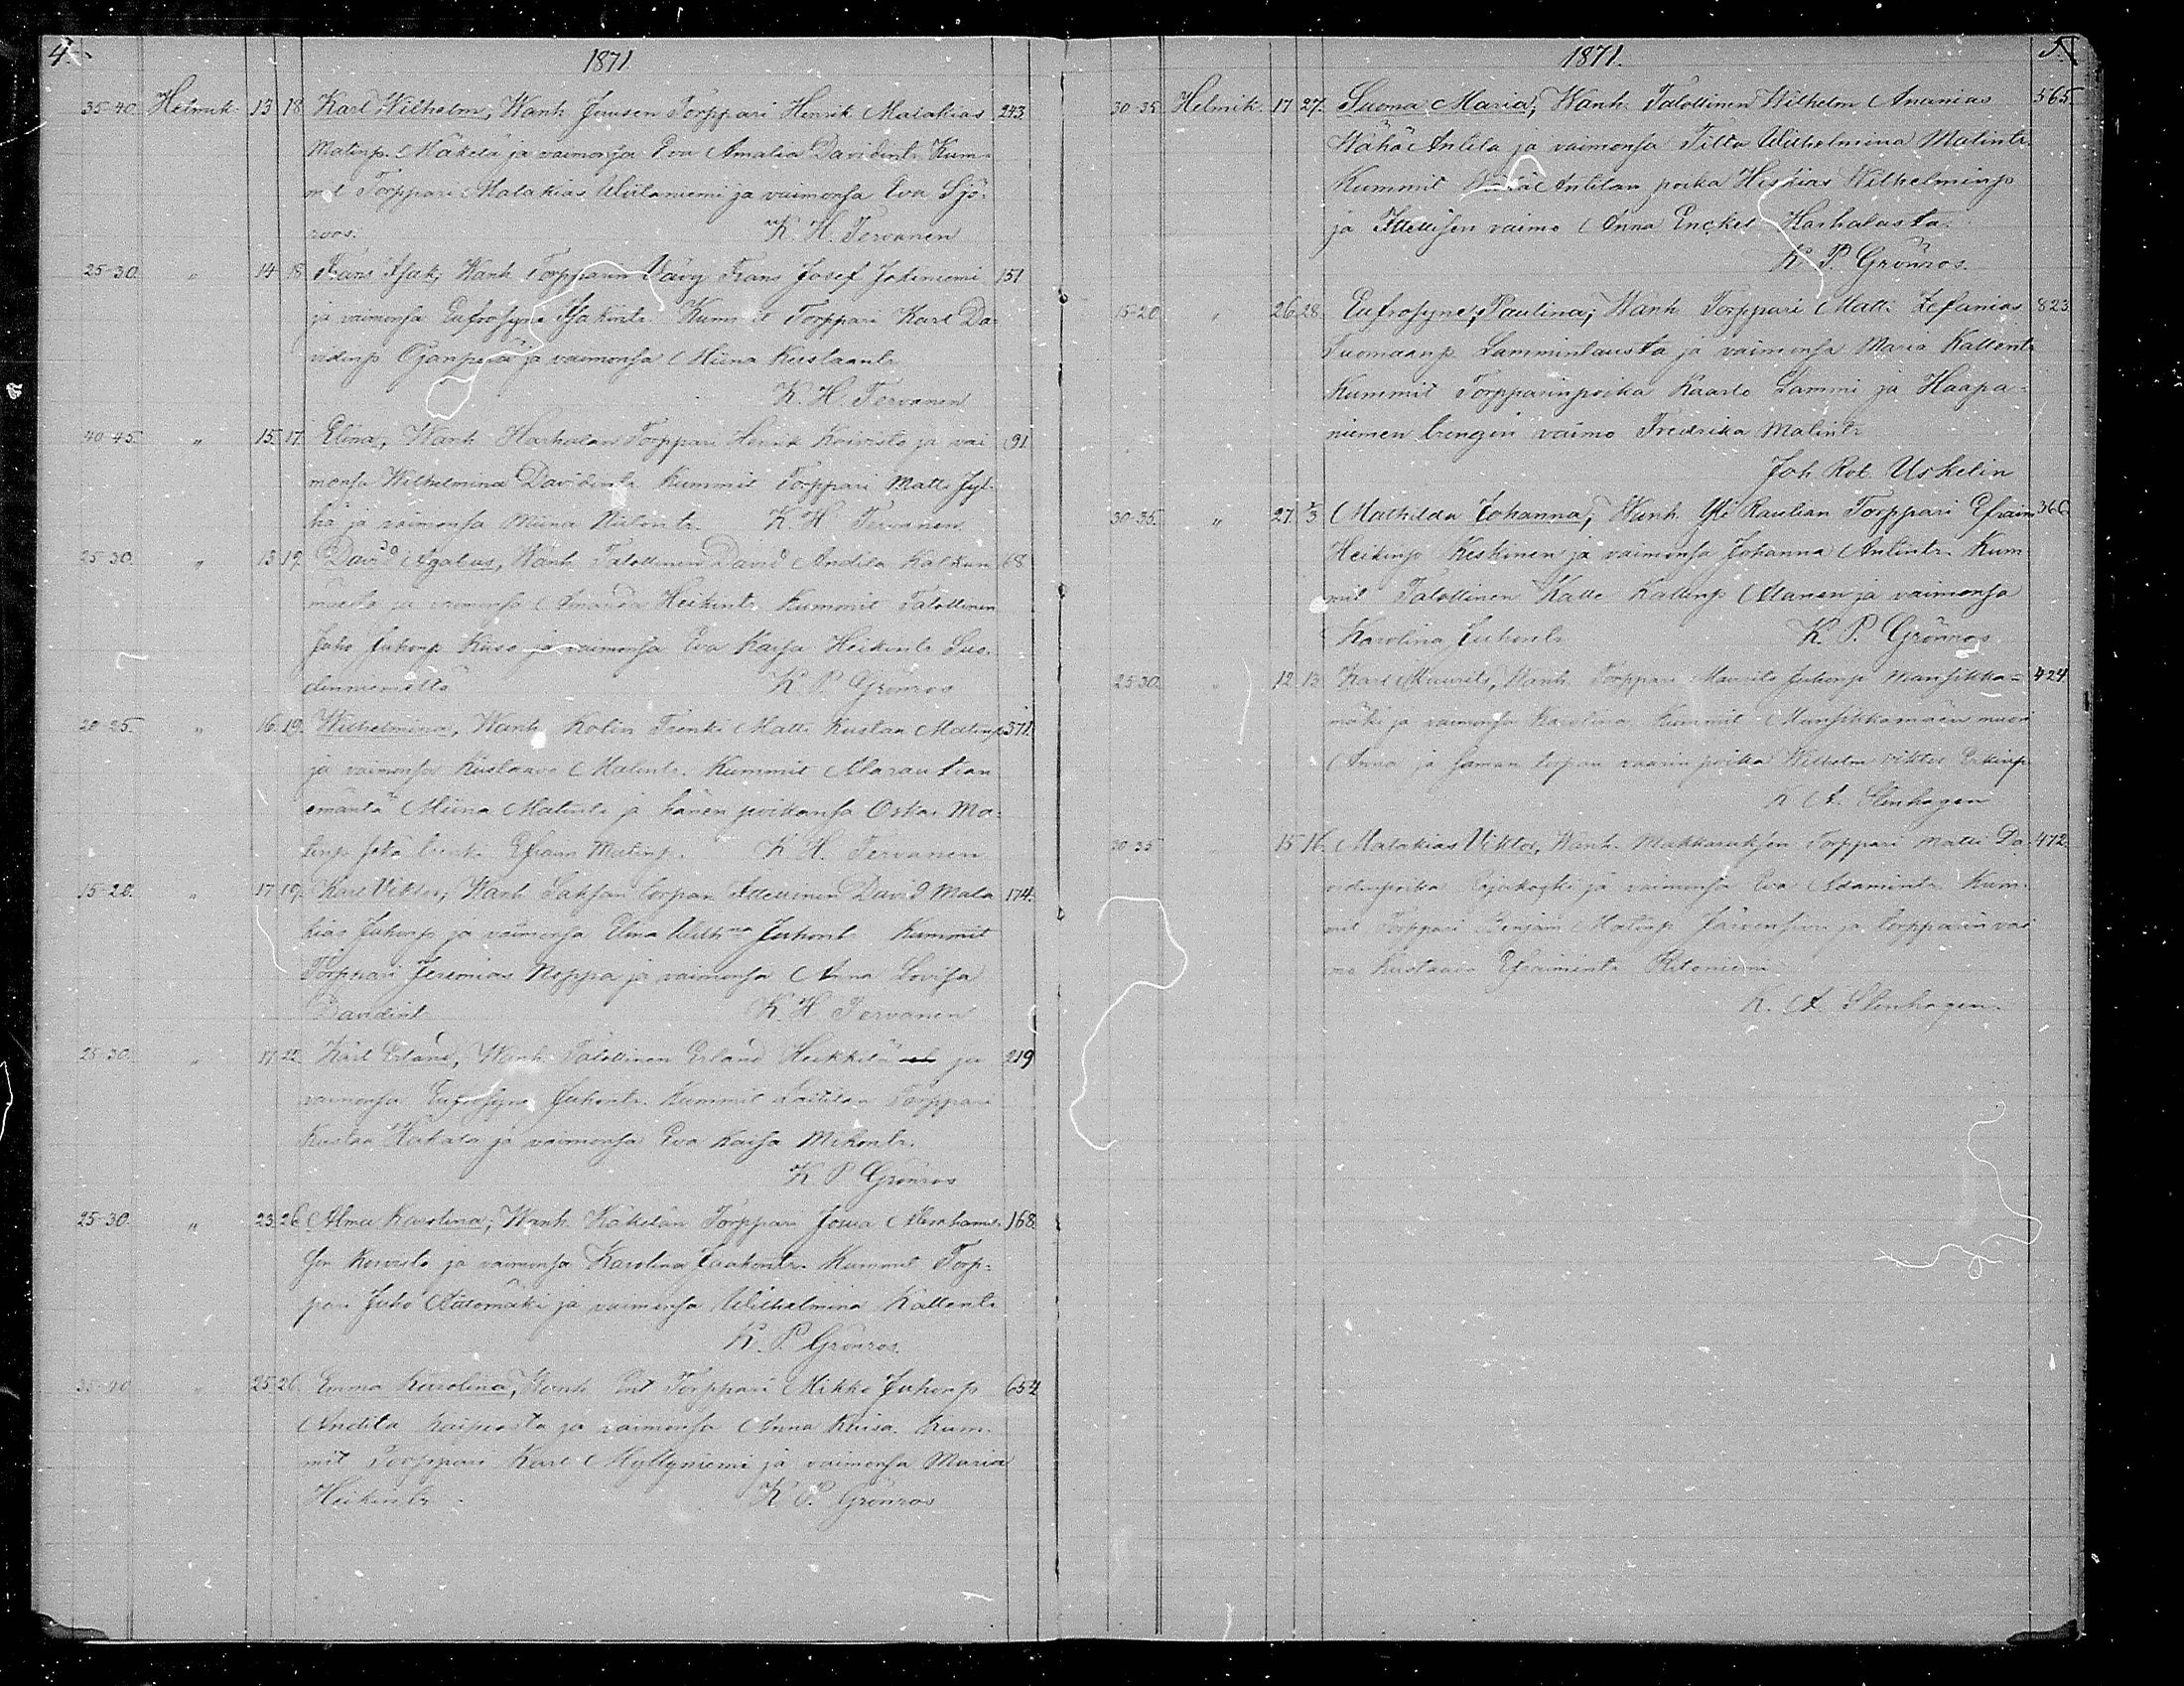 4.
1871
35-40 Helmik. 13 18 Karl Wilhelm, Wanh. Juusen Torppari Henrik Malakias 243
Matinp. Mäkelä ja vaimonsa Eva Amalia Davidintr. Kum-
mit Torppari Malakias Uiitaniemi ja vaimonsa Eva Sjö-
roos. K. H. Tervanen
25-30 " 14 18 Frans Isak, Wanh. Torpparin Vävy Frans Josef Jokiniemi 151
ja vaimonsa Eufrosyne Isakintr. Kummit Torppari Karl Da-
vidinp. Ojanperä ja vaimonsa Miina Kustaantr.
K. H. Tervanen
40-45. " 15. 17. Elina, Wanh. Harhalan Torppari Henrik Koivisto ja vai 91
monsa Wilhelmina Davidintr. Kummit Torppari Matti Jyl-
hä ja vaimonsa Miina K. H. Tervanen
25-30 " 13 19. David Agabus, Wanh. Talollinen David Andila Kalkun 68
mäelta ja vaimonsa Amanda Heikintr. Kummit Talollinen
Juho Juhonp. ja vaimonsa Eva Kaisa Heikintr. Suo-
denniemeltä K. P. Grönros
20-25. " 16. 19. Wilhelmina, Wanh. Kolin Trenki Matti Kustaa Matinp. 371.
ja vaimonsa Kustaava Matintr. Kummit Alarautian
emäntä Miina Matintr. ja hänen poikansa Oskar Ma-
tinp. sekä Efraim Matinp. K. H. Tervanen
15-20. " 17 19. Karl Viktor, Wanh. Saksan torpan Itellinen David Mala 174.
kias Juhonp. ja vaimonsa Elina Wilhna Juhont. Kummit
Torppari Jeremias Noppa ja vaimonsa Anna Lovisa
Davidint. K. H. Tervanen
25-30. " 17. 22. Karl Erland, Wanh. Talollinen Erland Heikkilä ja 219
vaimonsa Eufrosyne Juhontr. Kummit Laitilan Torppari
Kustaa ja vaimonsa Eva Kaisa Mikontr.
K P Grönros
25-30 " 23. 26. Alma Karolina, Wanh. Kakelan Torppari Josua Abrahamin 168.
Koivisto ja vaimonsa Karolina Jaakontr. Kummit Torp-
pari Juho ja vaimonsa Wilhelmina Kallentr.
K. P. Grönros.
35-40 " 25 26. Emma Karolina, Wanh. Torppari Mikko Juhonp. 654
Andila ja vaimonsa Anna Kaisa. Kum-
mit Torppari Karl Myllyniemi ja vaimonsa Maria
Heikintr. K. P. Grönros
1871.
5.
30-35 Helmik. 17 27. Suoma Maria, Wanh. Talollinen Wilhelm Ananias 565
Wähä Antila ja vaimonsa Tilta Wilhelmina Matintr.
Kummit Antilan poika Heskias Wilhelminp.
ja Itellisen vaimo Anna Enckel Harhalasta.
K. P. Grönros.
15-20 " 26. 28. Eufrosyne, Paulina, Wanh. Torppari Matti Zefanias 823
Tuomaanp. Lammintausta ja vaimonsa Maria Kallentr.
Kummit Torpparinpoika Kaarlo Lammi ja Haapa-
niemen trengin vaimo Fredrika Matintr.
Joh. Rob. Uskelin
30-35. " 27. 3 Mathilda Johanna, Wanh. Yli Raulian Torppari Efraim 360
Heikinp. Keskinen ja vaimonsa Johanna Antintr. Kum-
mit Talollinen Kalle Kallenp. Alanen ja vaimonsa
Karolina Juhontr. K. P. Grönros
25-30. 12. 13 Karl Maurits, Wanh. Torppari Maurits Juhonp. Mansikka- 424
mäki ja vaimonsa Karolina Kummit Mansikkamäen muori
Anna ja saman torpan vaarin poika Wilhelm Viktor Erkinp.
K. A. Stenhagen
15 16. Malakias Viktor, Wanh. Makkaruksen Torppari Matti Da- 472
vidinpoika Rajakoski ja vaimonsa Eva Adamintr. Kum-
mit Torppari Benjam. Matinp. Järvensivu ja torpparin vai
mo Kustaava Efraimintr. Ritoniemi
K. A. Stenhagen.